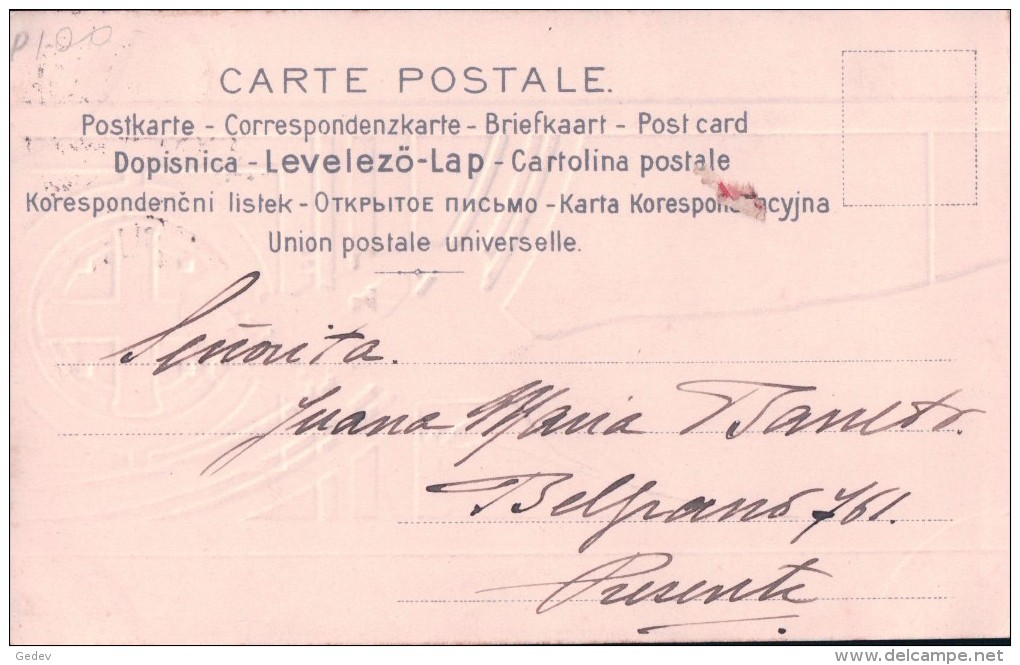 P 1-00
CARTE POSTALE.
Postkarte - Correspondenzkarte - Briefkaart - Post card
Dopisnica - Levelező-Lap - Cartolina postale
Korespondenční listek - Открытое письмо - Karta Korespondacyjna
Union postale universelle.
Señorita.
Juana Maria
Belgrano 761.
Presente
Gedev
delcampe.net